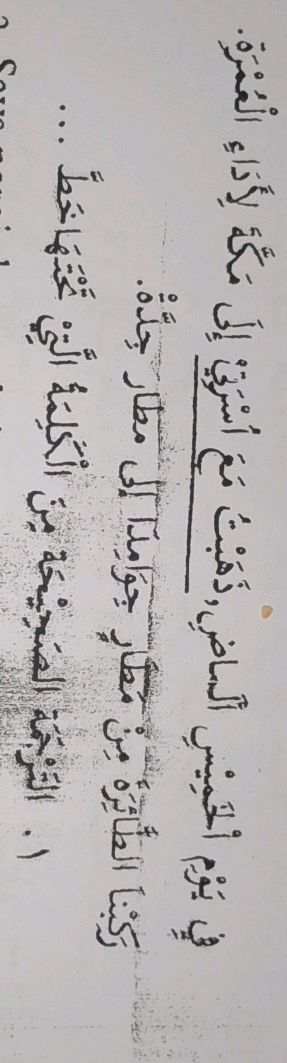 فِي يَوْمِ الْخَمِيْسِ الْماضِي، ذَهَبْتُ مَعَ أُسْرَتِيْ إِلَى مَكَّةَ لِأَدَاءِ الْعُمْرَةِ.
رَكِبْنَا الطَّائِرَةَ مِنْ مَطَارِ جوَامِدَا إلى مطار جِدَّةْ.
١. التَرْجَمَة الصَحِيْحَة مِنَ الْكَلِمَةُ الَّتِيْ تَحْتَهَا خَطٌّ ...